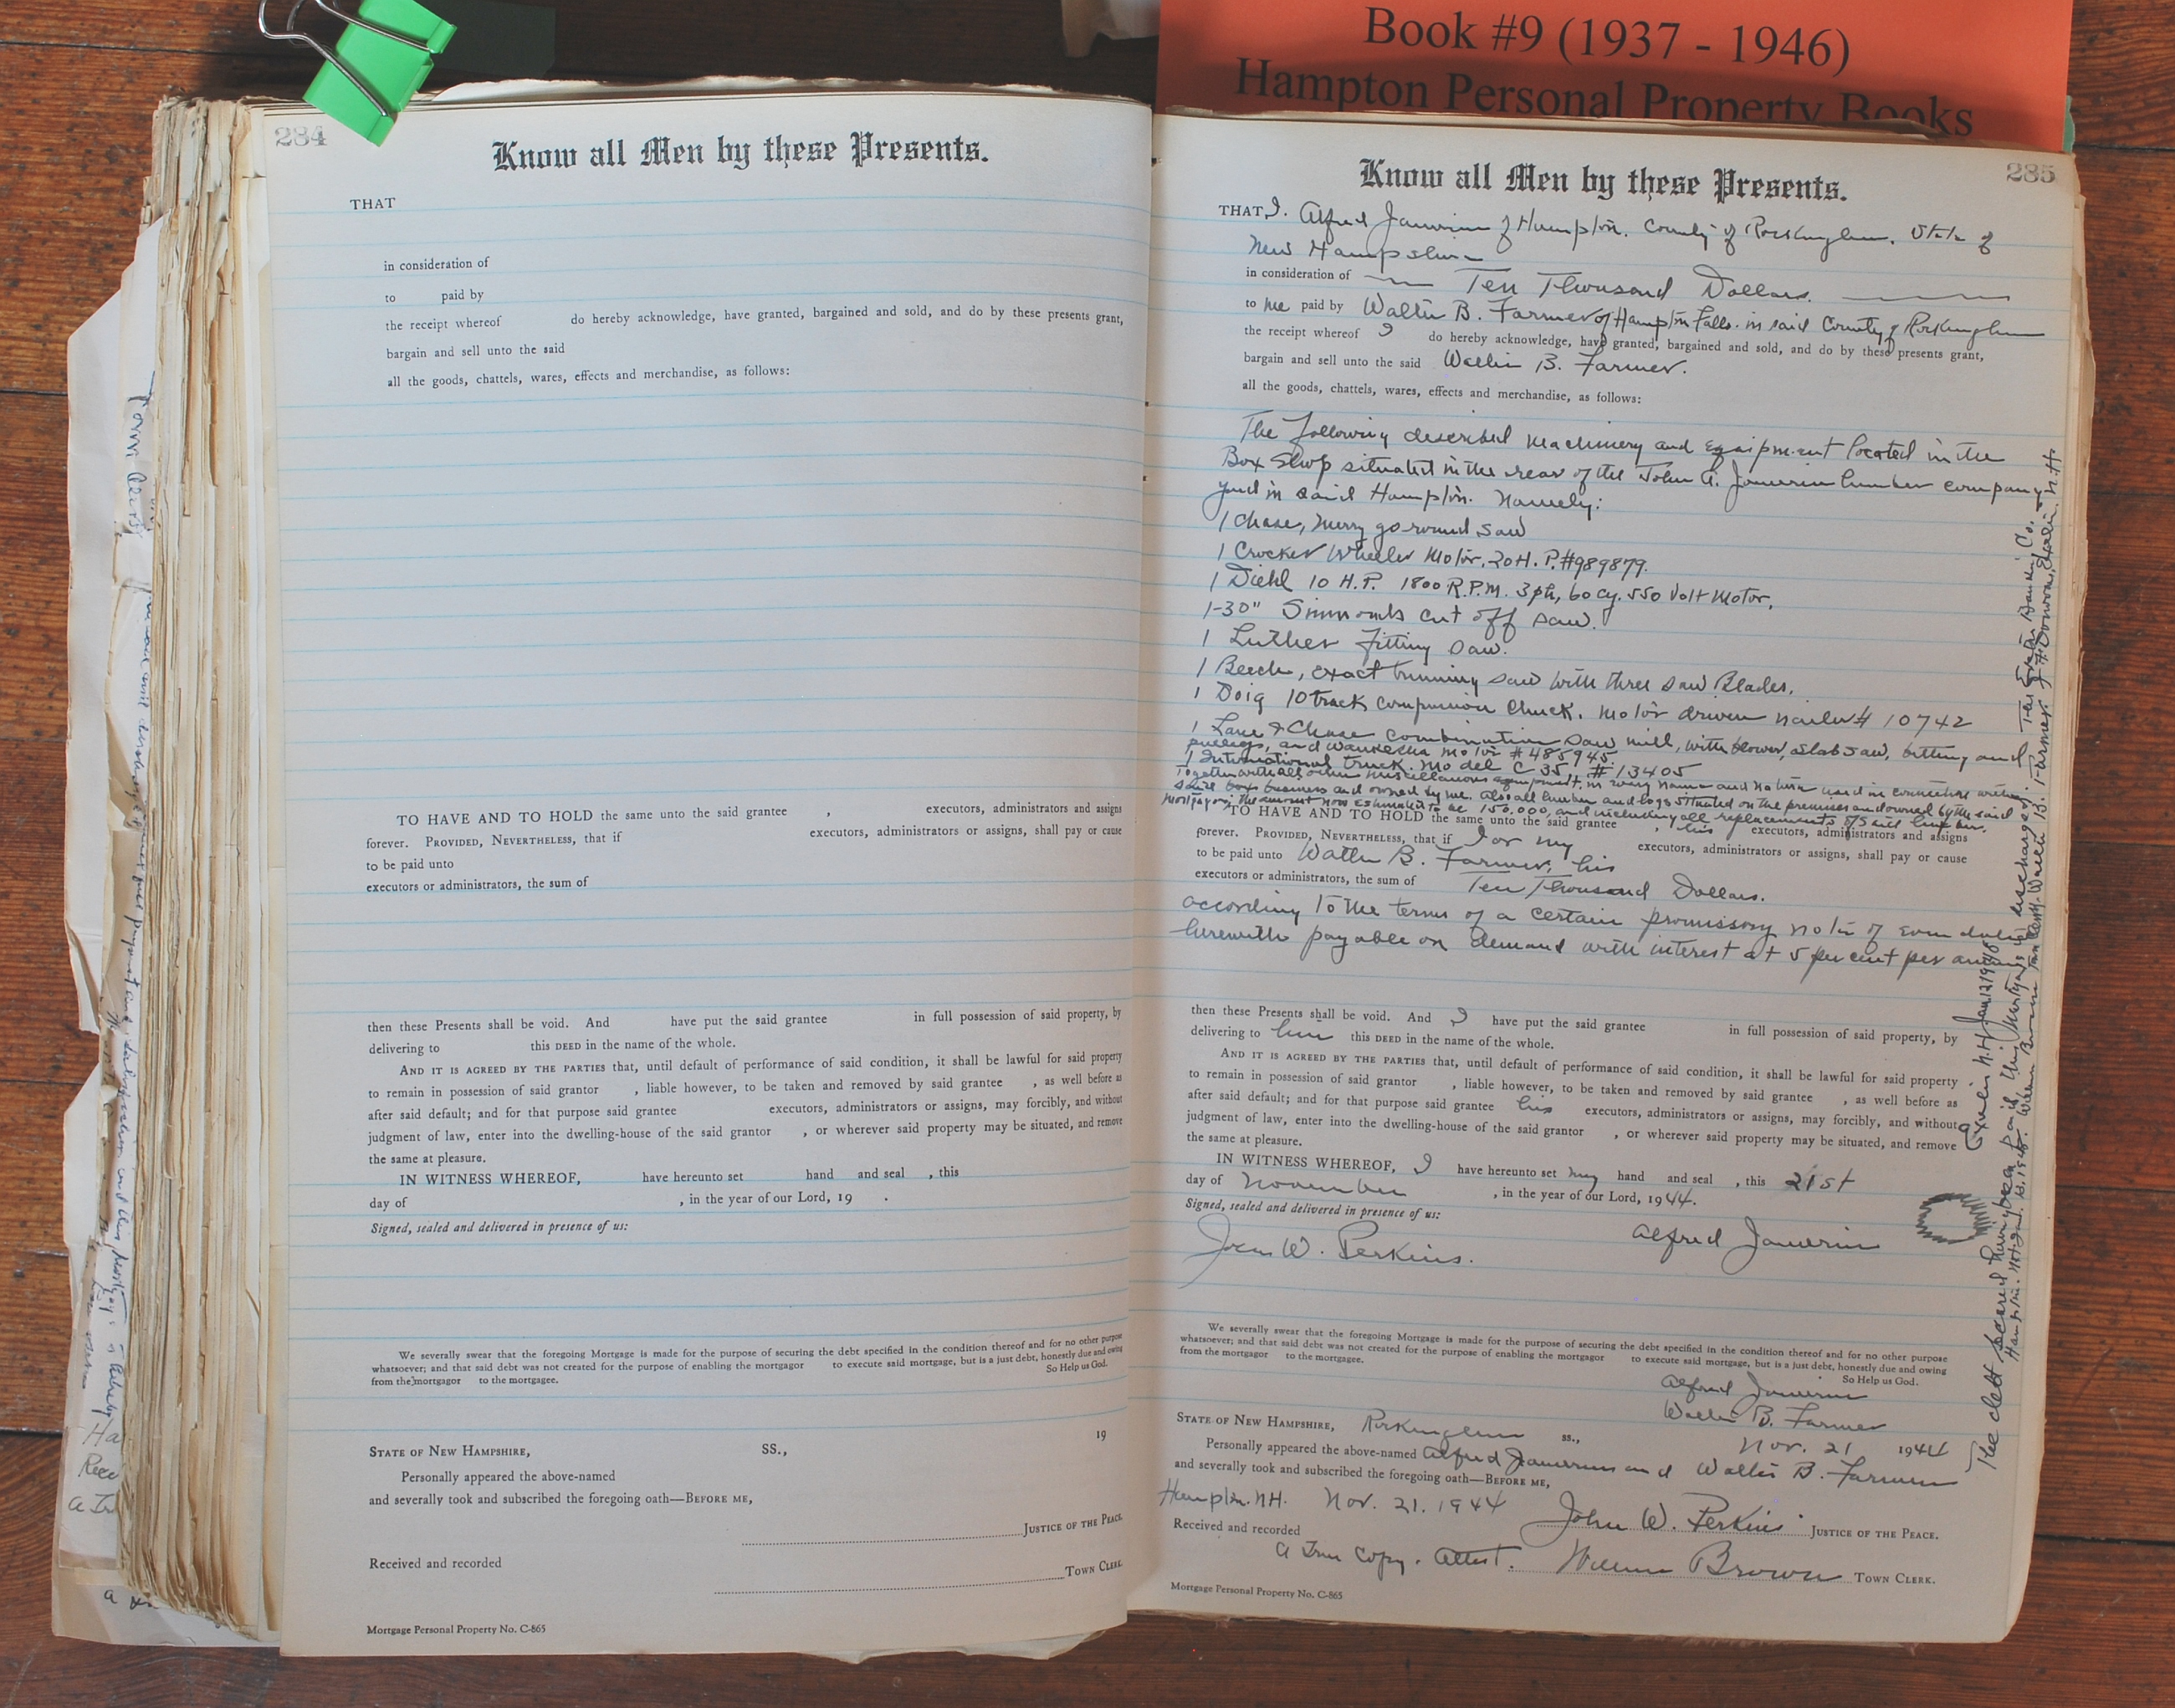 Book #9 (1937 - 1946)
Hampton Personal Property Books
234
Know all Men by these Presents.
THAT
in consideration of
to paid by
the receipt whereof do hereby acknowledge, have granted, bargained and sold, and do by these presents grant,
bargain and sell unto the said
all the goods, chattels, wares, effects and merchandise, as follows:
TO HAVE AND TO HOLD the same unto the said grantee , executors, administrators and assigns
forever. PROVIDED, NEVERTHELESS, that if executors, administrators or assigns, shall pay or cause
to be paid unto
executors or administrators, the sum of
then these Presents shall be void. And have put the said grantee in full possession of said property, by
delivering to this DEED in the name of the whole.
AND IT IS AGREED BY THE PARTIES that, until default of performance of said condition, it shall be lawful for said property
to remain in possession of said grantor , liable however, to be taken and removed by said grantee , as well before as
after said default; and for that purpose said grantee executors, administrators or assigns, may forcibly, and without
judgment of law, enter into the dwelling-house of the said grantor , or wherever said property may be situated, and remove
the same at pleasure.
IN WITNESS WHEREOF, have hereunto set hand and seal , this
day of , in the year of our Lord, 19 .
Signed, sealed and delivered in presence of us:
We severally swear that the foregoing Mortgage is made for the purpose of securing the debt specified in the condition thereof and for no other purpose
whatsoever; and that said debt was not created for the purpose of enabling the mortgagor to execute said mortgage, but is a just debt, honestly due and owing
from the mortgagor to the mortgagee. So Help us God.
STATE OF NEW HAMPSHIRE, SS., 19
Personally appeared the above-named
and severally took and subscribed the foregoing oath—BEFORE ME,
JUSTICE OF THE PEACE.
Received and recorded
TOWN CLERK.
Mortgage Personal Property No. C-865
285
Know all Men by these Presents.
THAT I. Alfred Janvrin of Hampton. County of Rockingham. State of
New Hampshire
in consideration of Ten Thousand Dollars.
to me paid by Walter B. Farmer of Hampton Falls. in said County of Rockingham
the receipt whereof I do hereby acknowledge, have granted, bargained and sold, and do by these presents grant,
bargain and sell unto the said Walter B. Farmer.
all the goods, chattels, wares, effects and merchandise, as follows:
The following described machinery and equipment located in the
Box Shop situated in the rear of the John A. Janvrin lumber company
yard in said Hampton. Namely:
1 Chase, merry go round saw
1 Crocker Wheeler Motor. 20 H. P. #989879.
1 Diehl 10 H.P. 1800 R.P.M. 3 ph, 60 cy. 550 Volt Motor,
1-30" Simmonds cut off saw.
1 Luther fitting saw.
1 Beech, exact trimming saw with three saw Blades.
1 Doig 10 track companion chuck. Motor driven nailer # 10742
1 Lane & Chase combination saw mill, with blower, slab saw, belting and
pulleys, and Waukesha motor # 485945.
1 International truck. Model C 35 # 13405
Together with all other miscellaneous equipment, in every name and nature used in connection with
said box business and owned by me. Also all lumber and logs situated on the premises and owned by the said
mortgagor, the amount now estimated to be 150,000, and including all replacements of said lumber.
TO HAVE AND TO HOLD the same unto the said grantee , his executors, administrators and assigns
forever. PROVIDED, NEVERTHELESS, that if I or my executors, administrators or assigns, shall pay or cause
to be paid unto Walter B. Farmer, his
executors or administrators, the sum of Ten Thousand Dollars.
according to the terms of a certain promissory note of even date
herewith payable on demand with interest at 5 per cent per annum
then these Presents shall be void. And I have put the said grantee in full possession of said property, by
delivering to him this DEED in the name of the whole.
AND IT IS AGREED BY THE PARTIES that, until default of performance of said condition, it shall be lawful for said property
to remain in possession of said grantor , liable however, to be taken and removed by said grantee , as well before as
after said default; and for that purpose said grantee his executors, administrators or assigns, may forcibly, and without
judgment of law, enter into the dwelling-house of the said grantor , or wherever said property may be situated, and remove
the same at pleasure.
IN WITNESS WHEREOF, I have hereunto set my hand and seal , this 21st
day of November , in the year of our Lord, 1944.
Signed, sealed and delivered in presence of us:
John W. Perkins. Alfred Janvrin
We severally swear that the foregoing Mortgage is made for the purpose of securing the debt specified in the condition thereof and for no other purpose
whatsoever; and that said debt was not created for the purpose of enabling the mortgagor to execute said mortgage, but is a just debt, honestly due and owing
from the mortgagor to the mortgagee. So Help us God.
Alfred Janvrin
Walter B. Farmer
STATE OF NEW HAMPSHIRE, Rockingham ss., Nov. 21 1944
Personally appeared the above-named Alfred Janvrin and Walter B. Farmer
and severally took and subscribed the foregoing oath—BEFORE ME,
Hampton. NH. Nov. 21. 1944 John W. Perkins JUSTICE OF THE PEACE.
Received and recorded
A True Copy. Attest. William Brown TOWN CLERK.
Mortgage Personal Property No. C-865
Exeter N.H. Jan 12 1948
The debt secured having been paid this Mortgage is discharged. The Exeter Banking Co.
Walter B. Farmer
William Brown Town Clerk.